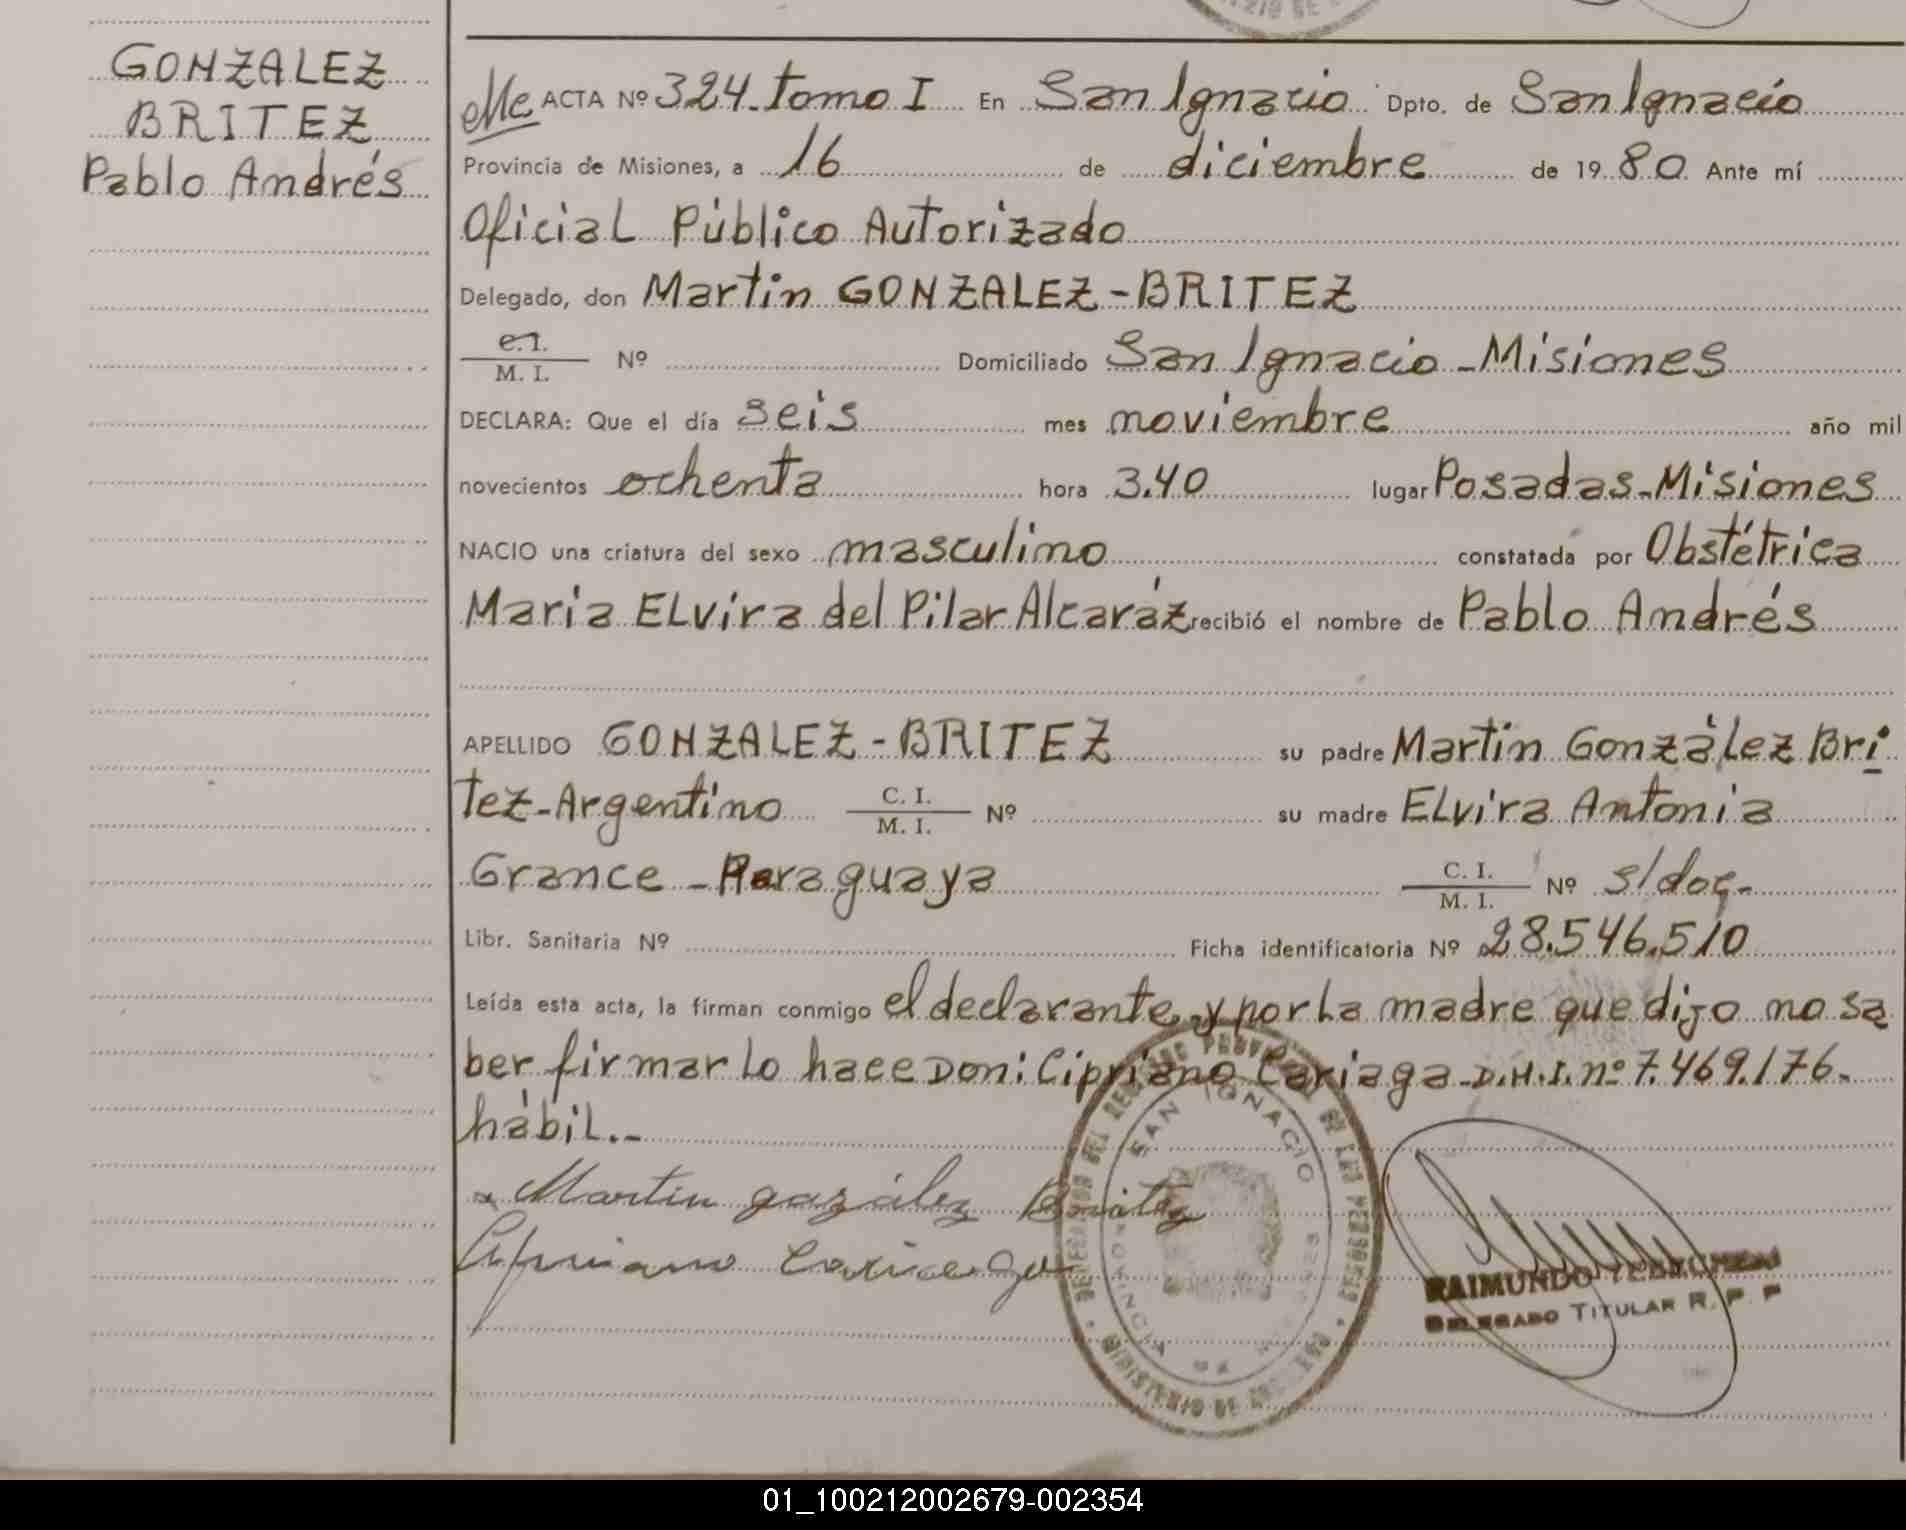 GONZALEZ
BRITEZ
Pablo Andrés
ACTA Nº 324. tomo I En San Ignacio Dpto. de San Ignacio
Provincia de Misiones, a 16 de diciembre de 1980 Ante mí
Oficial Público Autorizado
Delegado, don Martin GONZALEZ-BRITEZ
C.I.
M. I. Nº Domiciliado San Ignacio - Misiones
DECLARA: Que el día seis mes noviembre año mil
novecientos ochenta hora 3.40 lugar Posadas-Misiones
NACIO una criatura del sexo masculino constatada por Obstétrica
Maria Elvira del Pilar Alcaráz recibió el nombre de Pablo Andrés
APELLIDO GONZALEZ-BRITEZ su padre Martin González Bri
tez-Argentino C. I. M. I. Nº su madre Elvira Antonia
Grance - Paraguaya C. I. M. I. Nº s/doc.
Libr. Sanitaria Nº Ficha identificatoria Nº 28.546.510
Leída esta acta, la firman conmigo el declarante, y por la madre que dijo no sa
ber firmar lo hace Don: Cipriano Cariaga D.N.I. nº 7.469.176.
hábil.-
Martin gozález Britez
Cipriano Cariaga
SAN IGNACIO
RAIMUNDO
DELEGADO TITULAR R. P. P
01_100212002679-002354